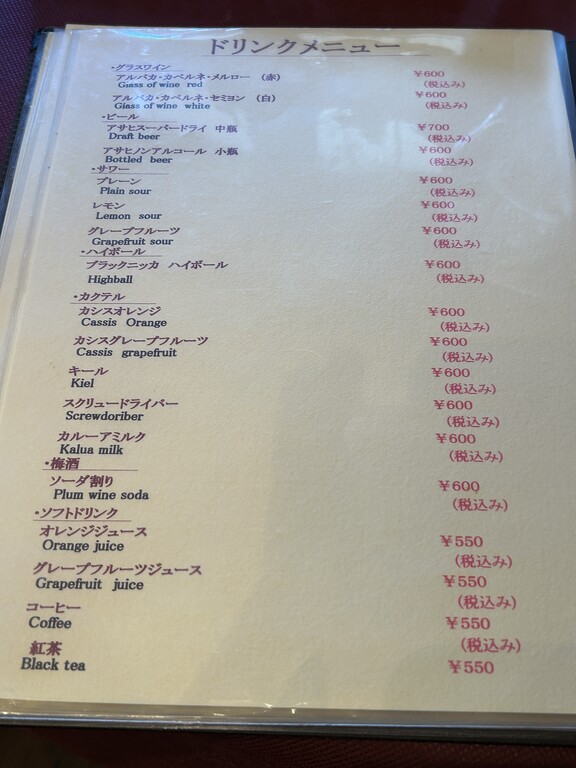 ドリンクメニュー
・グラスワイン
アルパカ・カベルネ・メルロー （赤） ¥600
Glass of wine red (税込み)
アルパカ・カベルネ・セミヨン （白） ¥600
Glass of wine white (税込み)
・ビール
アサヒスーパードライ 中瓶 ¥700
Draft beer (税込み)
アサヒノンアルコール 小瓶 ¥600
Bottled beer (税込み)
・サワー
プレーン ¥600
Plain sour (税込み)
レモン ¥600
Lemon sour (税込み)
グレープフルーツ ¥600
Grapefruit sour (税込み)
・ハイボール
ブラックニッカ ハイボール ¥600
Highball (税込み)
・カクテル
カシスオレンジ ¥600
Cassis Orange (税込み)
カシスグレープフルーツ ¥600
Cassis grapefruit (税込み)
キール ¥600
Kiel (税込み)
スクリュードライバー ¥600
Screwdoriber (税込み)
カルーアミルク ¥600
Kalua milk (税込み)
・梅酒
ソーダ割り ¥600
Plum wine soda (税込み)
・ソフトドリンク
オレンジジュース ¥550
Orange juice (税込み)
グレープフルーツジュース ¥550
Grapefruit juice (税込み)
コーヒー ¥550
Coffee (税込み)
紅茶 ¥550
Black tea